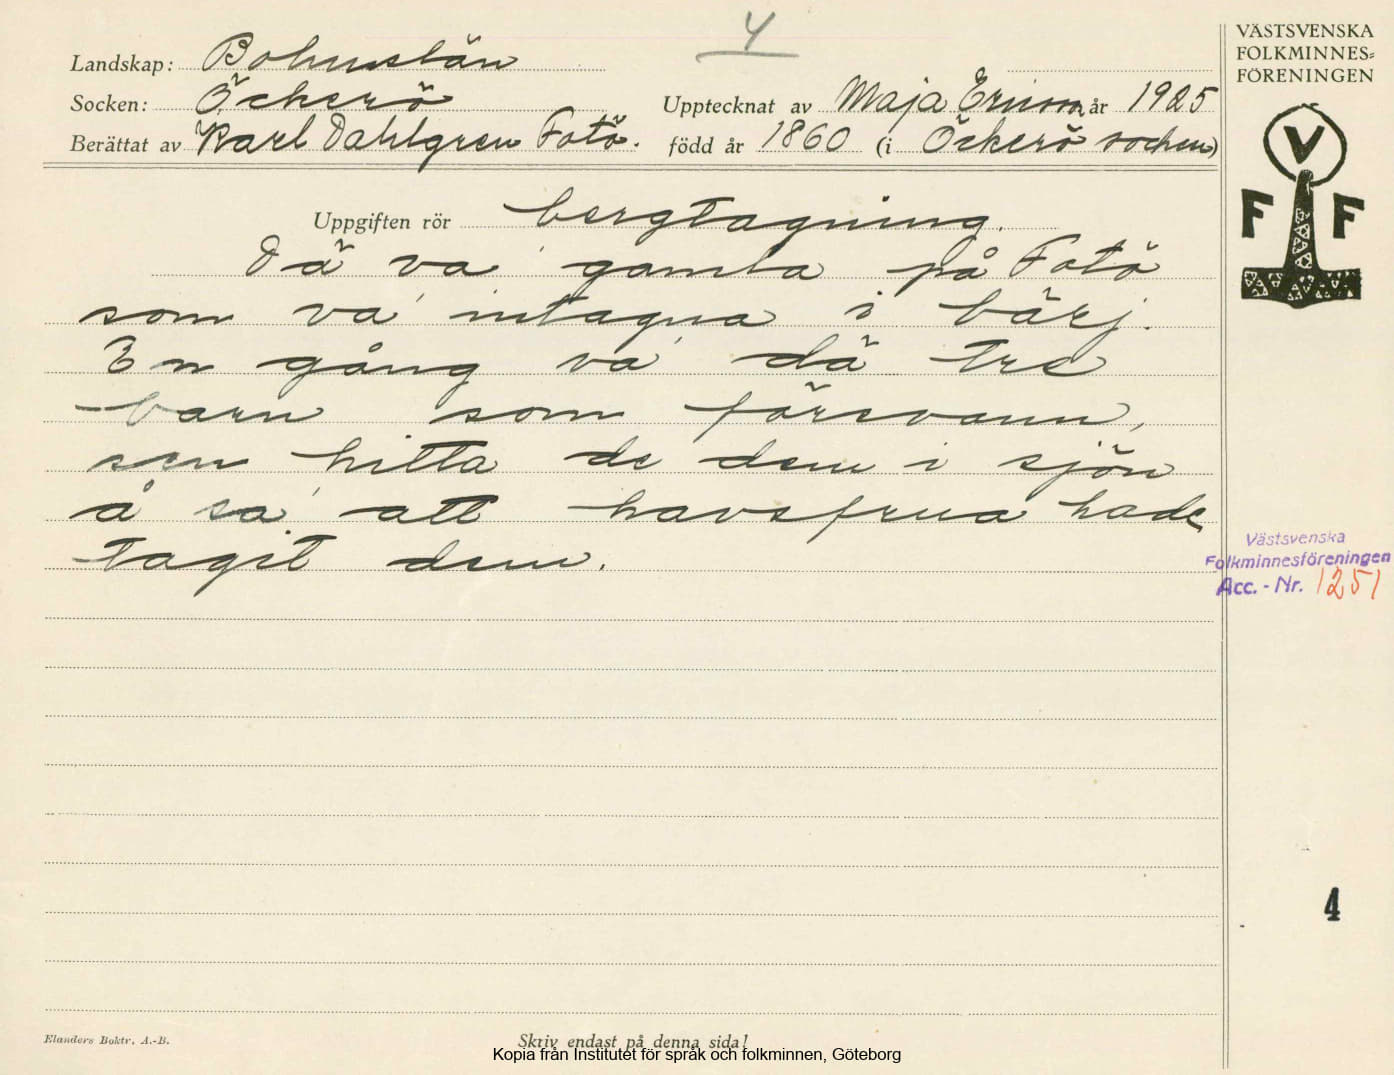 4
VÄSTSVENSKA
FOLKMINNES=
FÖRENINGEN
Landskap: Bohuslän
Socken: Öckerö
Upptecknat av Maja Ericson år 1925
Berättat av Karl Dahlgren Fotö.
född år 1860 (i Öckerö socken)
V
F F
Uppgiften rör bergtagning.
Dä va gamla på Fotö
som va intagna i bärj.
En gång va dä tre
barn som försvann,
sen hitta de dem i sjön
å sa att havsfrua hade
tagit dem.
Västsvenska
Folkminnesföreningen
Acc. - Nr. 1251
4
Elanders Boktr. A.-B.
Skriv endast på denna sida!
Kopia från Institutet för språk och folkminnen, Göteborg